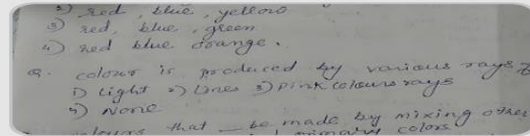 2) red, blue, yellow
3) red, blue, green
4) red blue orange.
Q. colour is produced by various rays of
1) light 2) lines 3) Pink colours rays
4) None
colours that — be made by mixing other
primary colors